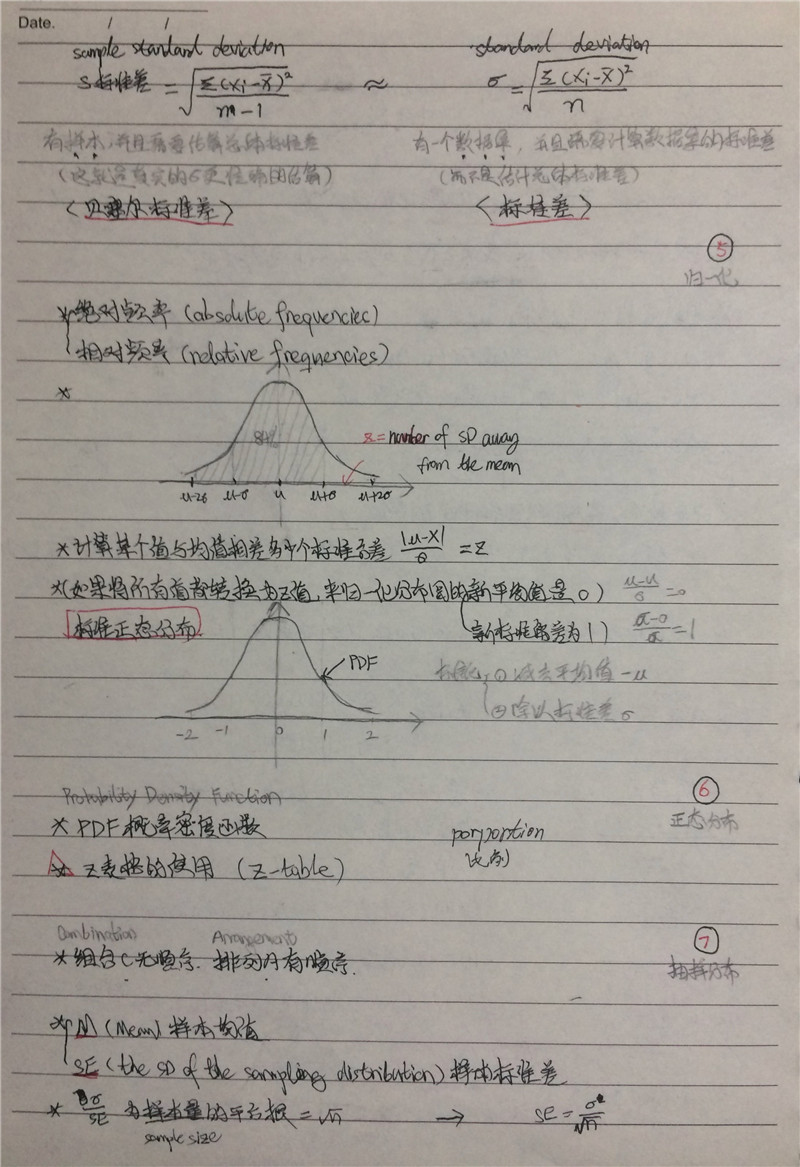 Date. / /
sample standard deviation
standard deviation
S标准差 = √(Σ(xᵢ-x̄)²/(n-1)) ≈ σ = √(Σ(xᵢ-x̄)²/n)
有样本,并且需要估算总体标准差
有一个数据集,并且需要计算数据集的标准差
(这就是真实的σ更准确的估算)
(而不是估计总体标准差)
〈贝塞尔标准差〉
〈标准差〉
⑤
归一化
*绝对频率 (absolute frequencies)
相对频率 (relative frequencies)
*
84%
z = number of SD away
from the mean
μ-2σ μ-σ μ μ+σ μ+2σ
*计算某个值与均值相差多少个标准差 |μ-x|/σ = z
*(如果将所有值都转换为z值,来归一化分布图的新平均值是0) (μ-μ)/σ = 0
标准正态分布
新标准偏差为1) (σ-0)/σ = 1
PDF
标准化 ①减去平均值 -μ
②除以标准差 σ
-2 -1 0 1 2
Probability Density Function
⑥
* PDF 概率密度函数
porportion
正态分布
* Z表格的使用 (Z-table)
比例
Combination Arrangement
⑦
*组合C无顺序. 排列A有顺序.
抽样分布
* M (Mean) 样本均值
SE (the SD of the sampling distribution) 样本标准差
* σ/SE 为样本量的平方根 = √n → SE = σ/√n
sample size